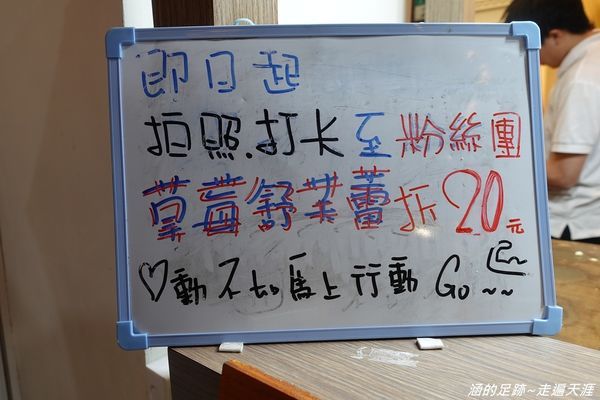 即日起
拍照.打卡至粉絲團
草莓舒芙蕾折20元
♡動不如馬上行動 Go~~
涵的足跡~走遍天涯